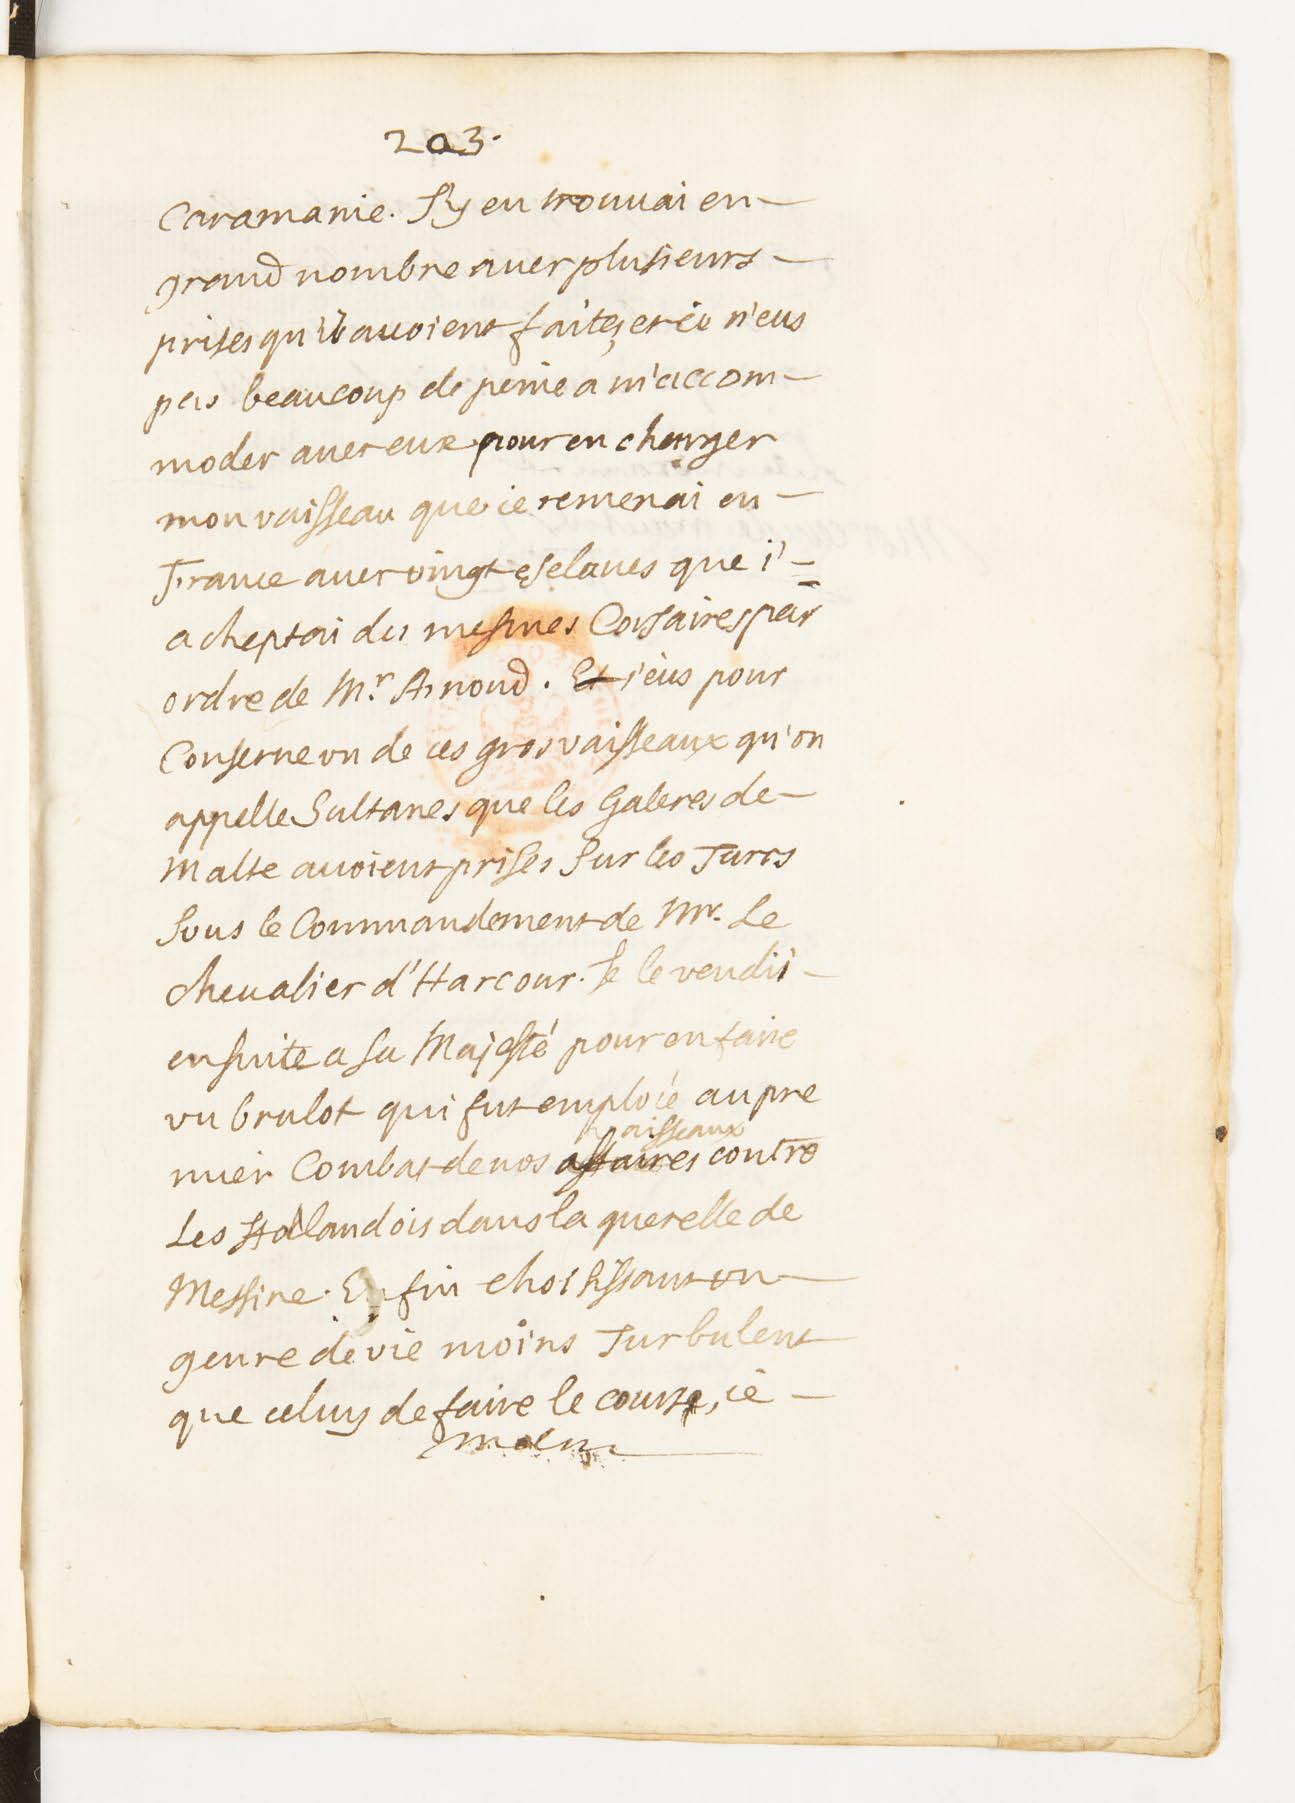 203.
Caramanie. J'y en trouuai en
grand nombre auec plusieurs
prises qu'ils auoient faites, et ie n'eus
pas beaucoup de peine a m'accom-
moder auec eux pour en charger
mon vaisseau que ie remenai en
France auec vingt esclaues que i'=
acheptai des mesmes Corsaires par
ordre de Mr. Arnoud. Et i'eus pour
Conserue vn de ces gros vaisseaux qu'on
appelle Sultanes que les Galeres de
Malte auoient prises sur les Turcs
sous le Commandement de Mr. Le
cheualier d'Harcour. Je le vendis
ensuite a sa Majesté pour en faire
vn brulot qui fut emploié au pre
mier Combat de nos affaires contre
vaisseaux
Les Hollandois dans la querelle de
Messine. Enfin choisissant vn
genre de vie moins Turbulent
que celuy de faire le course, ie
m'en